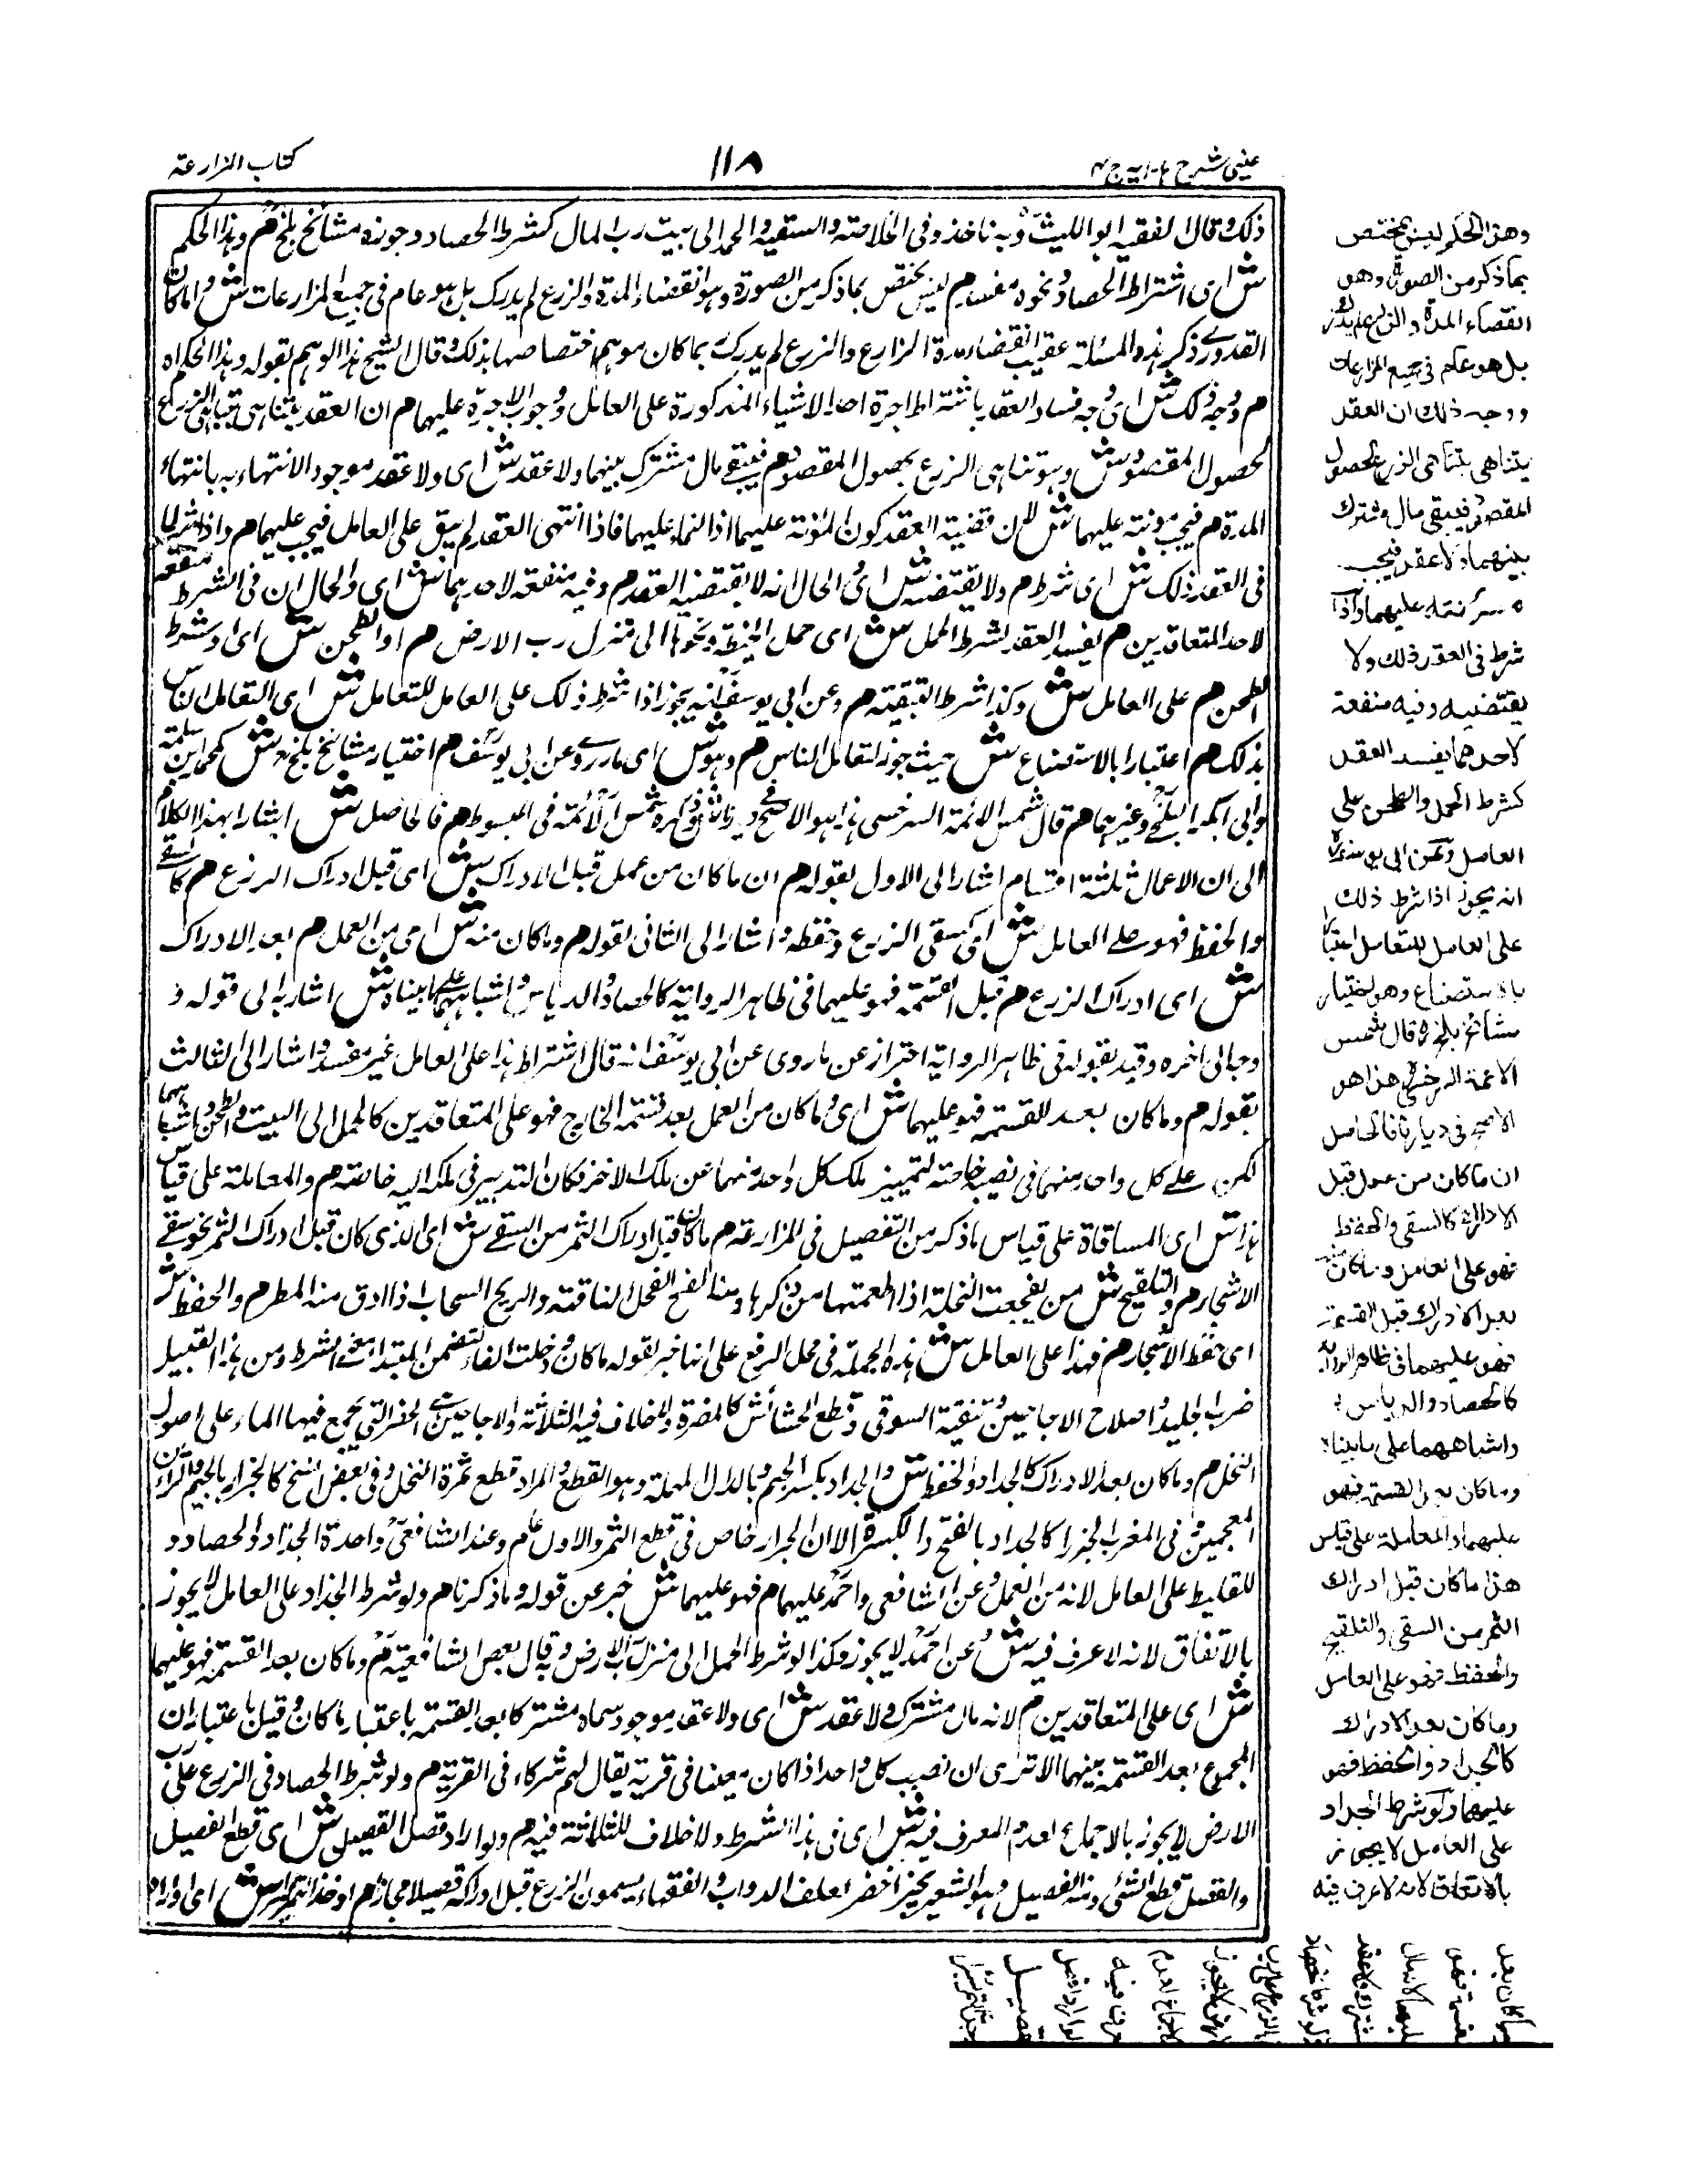 عینی شرح ہدایہ ج ۴
١١٨
کتاب المزارعة
ذلك وقال الفقيه ابو الليث وبه ناخذ وفى الخلاصة والستقيه والحمد الى بيت رب المال كشرط الحصاد وجوزه مشائخ بلخ م وهذا الحكم
ش اى اشتراط الحصاد ونحوه مفسد م ليس يختص بما ذكر من الصورة وهو انقضاء المدة والزرع لم يدرك بل هو عام فى جميع المزارعات ش واما كان
القدورى ذكر هذه المسئلة عقيب انقضاء مدة الزارع والزرع لم يدرك بما كان موهم اختصاصها بذلك وقال الشيخ هذا الوهم بقوله وهذا الحكم اه
م ووجه ذلك ش اى وجه فساد العقد باشتراط اجرة احد الاشياء المذكورة على العامل ووجوب الاجرة عليهما م ان العقد يتناهى بتناهى الزرع
لحصول المقصود ش وهو تناهى الزرع بحصول المقصود م فيبقى مال مشترك بينهما ولا عقد ش اى ولا عقد موجود الانتهاء به بانتهاء
المدة م فيجب مؤنته عليهما ش لان قضية العقد كون المؤنة عليهما اذا النماء عليهما فاذا انتهى العقد لم يبق على العامل فيجب عليهما م واذا شرط
فى العقد ذلك ش اى شرط م ولا يقتضيه ش اى والحال انه لا يقتضيه العقد م وفيه منفعة لاحدهما ش اى والحال ان فى الشرط منفعة
لاحد المتعاقدين م يفسد العقد لشرط الحمل ش اى حمل الحنطة ونحوها الى منزل رب الارض م او الطحن ش اى او شرط
الطحن م على العامل ش وكذا شرط التبقية م وعن ابى يوسف انه يجوز اذا شرط ذلك على العامل للتعامل ش اى التعامل الناس
بذلك م اعتبارا بالاستصناع ش حيث جوز لتعامل الناس م وهو ش اى ما روى عن ابى يوسف م اختيار مشائخ بلخ ش كمحمد ابن سلمة
وابى بكر البلخى وغيرهما م قال شمس الائمة السرخسى هذا هو الاصح فى ديارنا ش ذكره شمس الائمة فى المبسوط م فالحاصل ش اشار بهذا الكلام
الى ان الاعمال ثلثة اقسام اشار الى الاول بقوله م ان ما كان من عمل قبل الادراك ش اى قبل ادراك الزرع م كالسقى
والحفظ فهو على العامل ش اى كسقى الزرع وحفظه واشار الى الثانى بقوله م وما كان منه ش اى من العمل م بعد الادراك
ش اى ادراك الزرع م قبل القسمة فهو عليهما فى ظاهر الرواية كالحصاد والدياس واشباههما على ما بيناه ش اشار به الى قوله و
وجبا الى اخره وقيد بقوله فى ظاهر الرواية احتراز عن ما روى عن ابى يوسف انه قال اشتراط هذا على العامل غير مفسد واشار الى الثالث
بقوله م وما كان بعد القسمة فهو عليهما ش اى وما كان من العمل بعد قسمة الخارج فهو على المتعاقدين كالحمل الى البيت والطحن واشباههما
لكن على كل واحد منهما فى نصيبه خاصة لتمييز ملك كل واحد منهما عن ملك الاخر فكان التدبير فى ملكه اليه خاصة م والمعاملة على قياس
هذا ش اى المساقاة على قياس ما ذكر من التفصيل فى المزارعة م ما كان قبل ادراك الثمر من السقى ش اى الذى كان قبل ادراك الثمر نحو سقى
الاشجار م والتلقيح ش من لقحت النخلة اذا اطعمتها من ذكرها ومنه القح الفحل الناقة والريح السحاب اذا ادق منه المطر م والحفظ ش
اى حفظ الاشجار م فهذا على العامل ش هذه الجملة فى محل الرفع على انها خبر لقوله ما كان ودخلت الفاء لتضمن المبتدا معنى الشرط ومن هذا القبيل
ضرب الجليد واصلاح الاجاجين وتنقية السوقى وقطع الحشائش المضرة ولا خلاف فيه للثلاثة والاجاجين هى الحفر التى يجمع فيها الماء على اصول
النخل م وما كان بعد الادراك كالجداد والحفظ ش والجداد بكسر الجيم وبالدال المهملة وهو القطع والمراد قطع ثمرة النخل وفى بعض النسخ كالجزاز بالجيم والزائين
المعجمين فى المغرب الجزاز كالجداد بالفتح والكسر الا ان الجزاز خاص فى قطع الثمر والاول عام وعند الشافعى واحد الجذاذ والحصاد و
اللقاط على العامل لانه من العمل وعن الشافعى واحمد عليهما م فهو عليهما ش خبر عن قوله وما ذكرنا م ولو شرط الجداد على العامل لا يجوز
بالاتفاق لانه لا عرف فيه ش وعن احمد لا يجوز وكذا لو شرط الحمل الى منزل رب الارض وبه قال بعض الشافعية م وما كان بعد القسمة فهو عليهما
ش اى على المتعاقدين م لانه مال مشترك ولا عقد ش اى ولا عقد موجود سماه مشتركا بعد القسمة باعتبار ما كان وقيل باعتبار ان
المجموع بعد القسمة بينهما الا ترى ان نصيب كل واحد اذا كان معينا فى قرية يقال لهم شركاء فى القرية م ولو شرط الحصاد فى الزرع على رب
الارض لا يجوز بالاجماع لعدم العرف فيه ش اى فى هذا الشرط ولا خلاف للثلاثة فيه م ولو ارادا فصل القصيل ش اى قطع القصيل
والقصل قطع الشئ ومنه القصيل وهو الشعير يجز اخضر لعلف الدواب والفقهاء يسمون الزرع قبل ادراكه قصيلا مجازا م او جذ التمر بسرا ش اى او ارادا
وهذا الحكم ليس يختص
بما ذكر من الصورة وهو
انقضاء المدة والزرع لم يدرك
بل هو عام فى جميع المزارعات
ووجه ذلك ان العقد
يتناهى بتناهى الزرع لحصول
المقصود فيبقى مال مشترك
بينهما ولا عقد فيجب
مؤنته عليهما واذا
شرط فى العقد ذلك ولا
يقتضيه وفيه منفعة
لاحدهما يفسد العقد
كشرط الحمل والطحن على
العامل وعن ابى يوسف
انه يجوز اذا شرط ذلك
على العامل للتعامل اعتبارا
بالاستصناع وهو اختيار
مشائخ بلخ قال شمس
الائمة السرخسى هذا هو
الاصح فى ديارنا فالحاصل
ان ما كان من عمل قبل
الادراك كالسقى والحفظ
فهو على العامل وما كان منه
بعد الادراك قبل القسمة
فهو عليهما فى ظاهر الرواية
كالحصاد والدياس
واشباههما على ما بيناه
وما كان بعد القسمة فهو
عليهما والمعاملة على قياس
هذا ما كان قبل ادراك
الثمر من السقى والتلقيح
والحفظ فهو على العامل
وما كان بعد الادراك
كالجداد والحفظ فهو
عليهما ولو شرط الجداد
على العامل لا يجوز
بالاتفاق لانه لا عرف فيه
وما كان بعد
القسمة فهو
عليهما لانه مال
مشترك ولا عقد
ولو شرط الحصاد
فى الزرع على رب
الارض لا يجوز
بالاجماع لعدم
العرف فيه
ولو ارادا فصل
القصيل
او جذ التمر بسرا